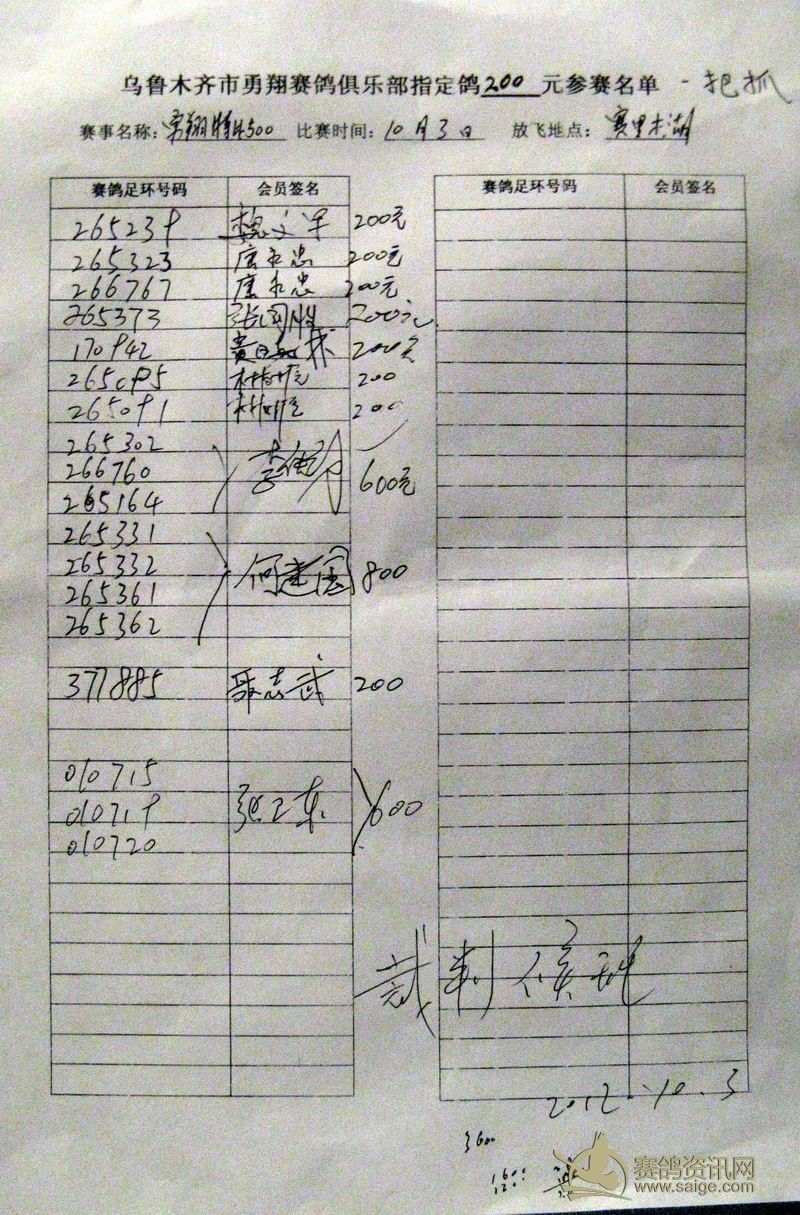 乌鲁木齐市勇翔赛鸽俱乐部指定鸽 200 元参赛名单 一把抓
赛事名称: 勇翔特比500 比赛时间: 10月3日 放飞地点: 赛里木湖
赛鸽足环号码 会员签名 赛鸽足环号码 会员签名
265239 魏文军 200元
265323 唐永忠 200元
266767 唐永忠 200元
265373 张国胜 200元
170942 200元
265095 200
265091 200
265302
266760 李 600元
265164
265331
265332 何建国 800
265361
265362
377885 志武 200
010715
010719 张卫东 600
010720
裁判 侯
2012.10.3
3600
赛鸽资讯网
www.saige.com